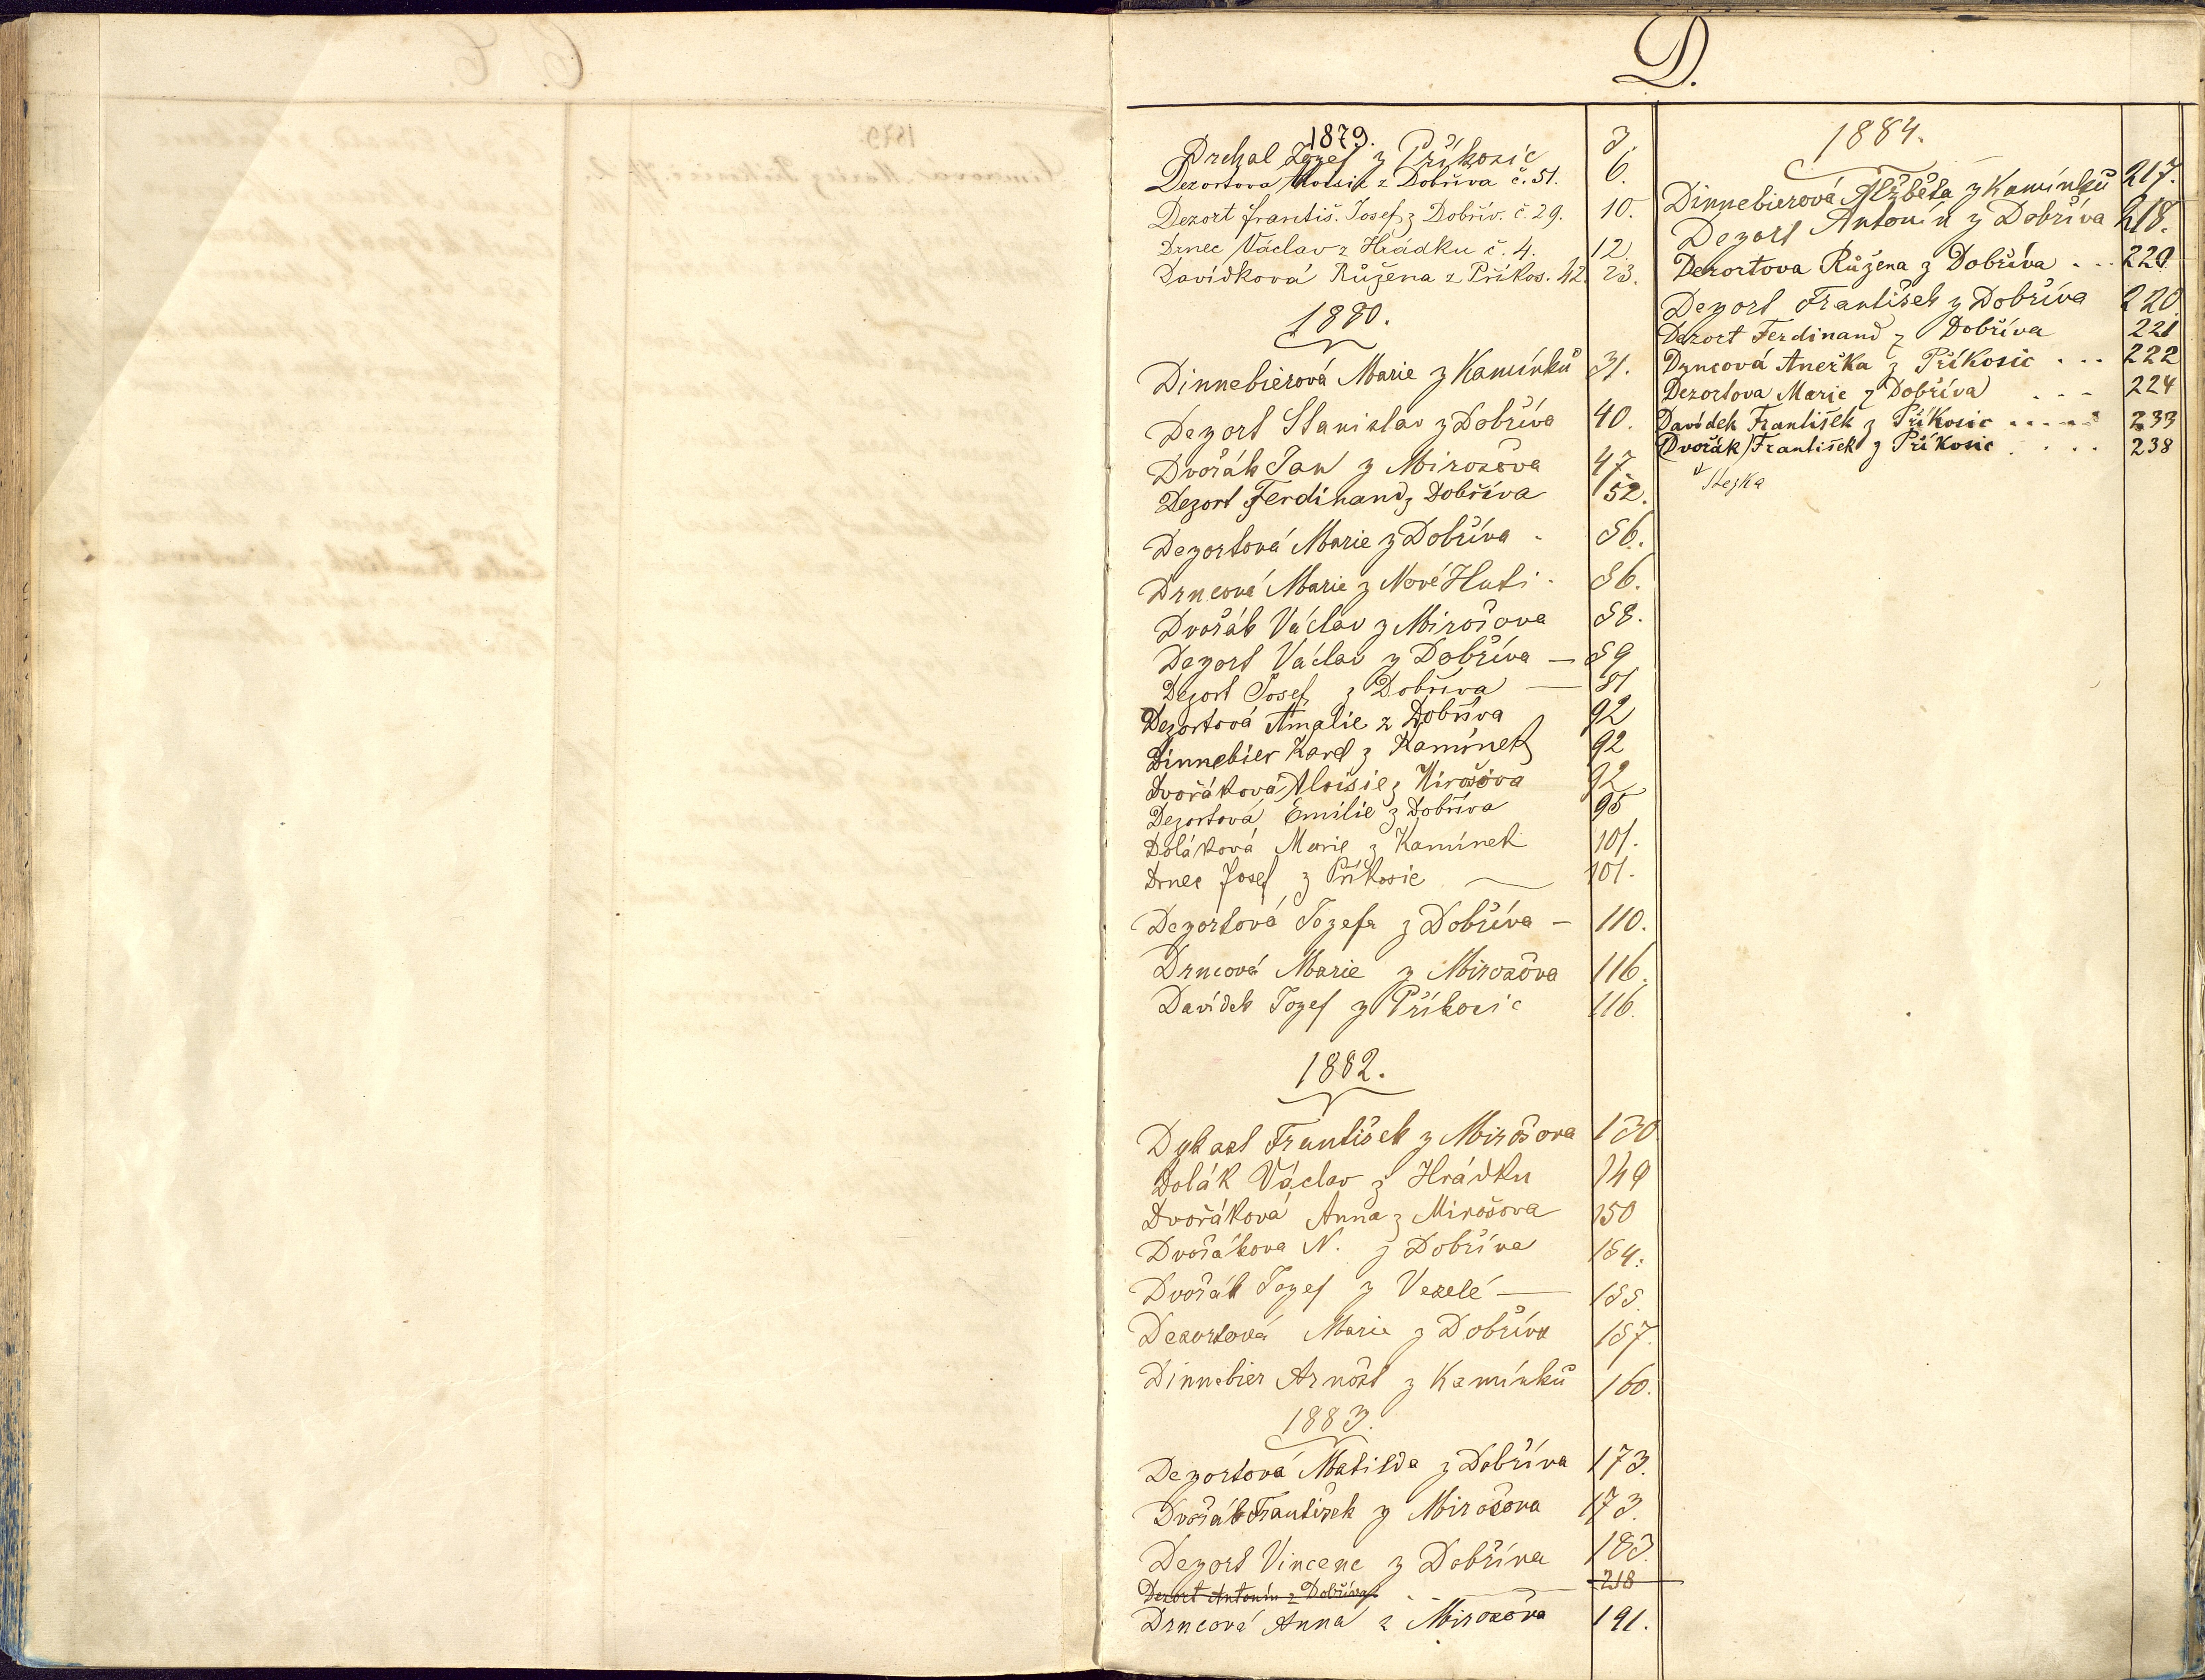 D.
1879.
Drchal Jozef z Příkosic 3.
Dezortova Aloisie z Dobříva č. 51. 6.
Dezort Františ. Josef z Dobřív. č. 29. 10.
Drnec Václav z Hrádku č. 4. 12.
Davídková Růžena z Příkos. 42. 23.
1880.
Dinnebierová Marie z Kamínků 31.
Dezort Stanislav z Dobříva 40.
Dvořák Jan z Mirošova 47.
Dezort Ferdinand z Dobříva 52.
Dezortová Marie z Dobříva - 56.
Drncová Marie z Nové Huti - 86.
Dvořák Václav z Mirošova 88.
Dezort Václav z Dobříva — 89
Dezort Josef z Dobříva — 81
Dezortová Amalie z Dobříva 92
Dinnebier Karel z Kamínek 92
Dvořáková Aloisie z Mirošova 92
Dezortová Emilie z Dobříva 95
Doláková Marie z Kamínek 101.
Drnec Josef z Příkosic — 101.
Dezortová Jozefa z Dobříva — 110.
Drncová Marie z Mirošova 116.
Davídek Jozef z Příkosic 116.
1882.
František z Mirošova 130.
Dolák Václav z Hrádku 149
Dvořáková Anna z Mirošova 150
Dvořákova N. z Dobříva 154.
Dvořák Jozef z Veselé — 155.
Dezortová Marie z Dobříva 157.
Dinnebier Arnošt z Kamínků 160.
1883.
Dezortová Matilda z Dobříva 173.
Dvořák František z Mirošova 173.
Dezort Vincenc z Dobříva 183.
Dezort Antonín z Dobříva. — 218
Drncová Anna z Mirošova 191.
1884.
Dinnebierová Alžběta z Kamínků 217.
Dezort Antonín z Dobříva 218.
Dezortova Růžena z Dobříva . . . 220
Dezort František z Dobříva 220
Dezort Ferdinand z Dobříva 221
Drncová Anežka z Příkosic . . . 222
Dezortova Marie z Dobříva . . . 224
Davídek František z Příkosic . . . . . 233
Dvořák František z Příkosic . . . . 238
Stezka
1879.